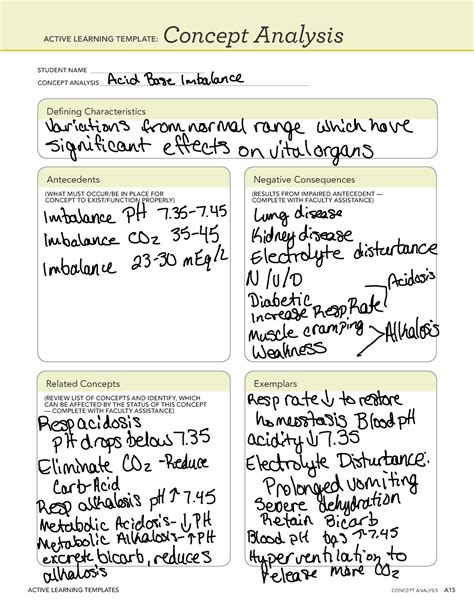 ACTIVE LEARNING TEMPLATE: Concept Analysis
STUDENT NAME
CONCEPT ANALYSIS Acid Base Imbalance
Defining Characteristics
Variations from normal range which have
significant effects on vital organs
Antecedents
(WHAT MUST OCCUR/BE IN PLACE FOR
CONCEPT TO EXIST/FUNCTION PROPERLY)
Imbalance PH 7.35-7.45
Imbalance CO2 35-45
Imbalance 23-30 mEq/L
Negative Consequences
(RESULTS FROM IMPAIRED ANTECEDENT —
COMPLETE WITH FACULTY ASSISTANCE)
Lung disease
Kidney disease
Electrolyte disturbance
N/V/D
Diabetic
Increase Resp Rate
Acidosis
Muscle cramping
Weakness
Alkalosis
Related Concepts
(REVIEW LIST OF CONCEPTS AND IDENTIFY, WHICH
CAN BE AFFECTED BY THE STATUS OF THIS CONCEPT
— COMPLETE WITH FACULTY ASSISTANCE)
Resp acidosis
pH drops below 7.35
Eliminate CO2 -Reduce
Carb-Acid
Resp alkalosis pH ↑ 7.45
Metabolic Acidosis- ↓ PH
Metabolic Alkalosis- ↑ PH
excrete bicarb, reduces
alkalosis
Exemplars
Resp rate ↓ to restore
homeostasis Blood pH
acidity ↓ 7.35
Electrolyte Disturbance:
Prolonged vomiting
Severe dehydration
Retain Bicarb
Blood pH ↑ 7.45
Hyperventilation to
release more CO2
ACTIVE LEARNING TEMPLATES
CONCEPT ANALYSIS A15